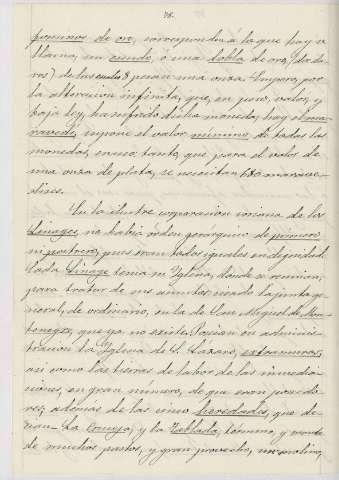 78.
pominos de oro, corresponden a lo que hoy se
llama, un escudo, ó una dobla de oro, (do de
ros) de las cuales 8 pesan una onza. Empero, por
la alteracion infinita, que, en peso, valor, y
baja ley, ha sufrido dicha moneda, hoy el ma-
ravedí, supone el valor mínimo de todas las
monedas, en uso; tanto, que para el valor de
una onza de plata, se necesitan 680 marave-
dises.
En la ilustre corporacion soriana de los
Linages, no habia órden gerárquico de primero
ni postrero, pues eran todos iguales en dignidad.
Cada Linage tenia su Yglesia, donde se reunian,
para tratar de sus asuntos siendo la junta ge-
neral, de ordinario, en la de San Miguel de Mon-
tenegro, que ya no existe. Poseian en adminis-
tracion la Yglesia de S. Lázaro, extramuros,
asi como las tierras de labor de las inmedia-
ciones, en gran número, de que eran poseedo-
res; ademas de las cinco heredades, que de-
cian La Conejo, y la Tablada, término, y monte
de muchos pastos, y gran provecho, un molino,